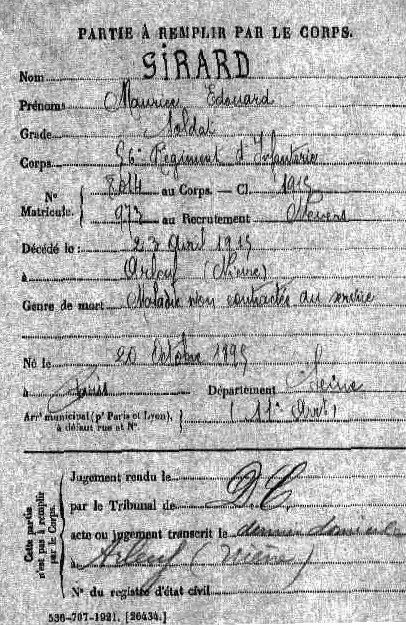 PARTIE À REMPLIR PAR LE CORPS.
Nom SIRARD
Prénoms Maurice Edouard
Grade Soldat
Corps 56e Régiment d'Infanterie
N° Matricule. { 8014 au Corps. — Cl. 1915
973 au Recrutement Nevers
Décédé le : 23 Avril 1915
à Arleuf (Nièvre)
Genre de mort Maladie non contractée au service
Né le 20 Octobre 1895
à Paris Département Seine
Arrt municipal (pr Paris et Lyon), à défaut rue et N°. } (11e Arrt)
Cette partie n'est pas à remplir par le Corps.
Jugement rendu le
par le Tribunal de
acte ou jugement transcrit le dernier domicile
à Arleuf (Nièvre)
N° du registre d'état civil
536-707-1921. [26434.]